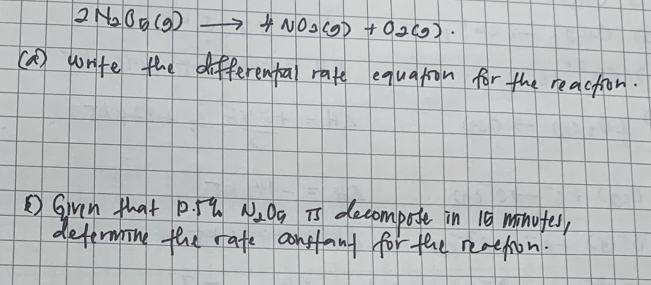 2N₂O₅(g) → 4NO₂(g) + O₂(g).
(a) Write the differental rate equation for the reaction.
Given that 0.5% N₂O₅ is decompose in 15 minutes,
determine the rate constant for the reaction.